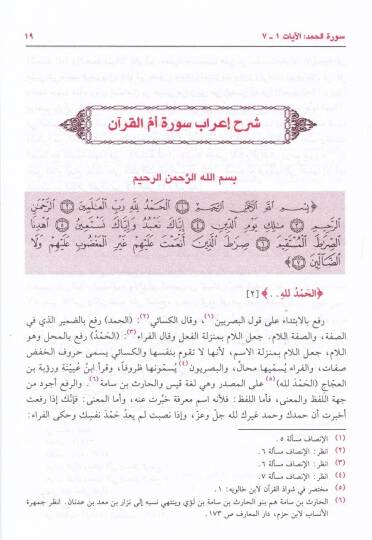 سورة الحمد: الآيات ١ - ٧
١٩
شرح إعراب سورة أم القرآن
بسم الله الرَّحمن الرحيم
﴿بِسْمِ ٱللَّهِ ٱلرَّحْمَٰنِ ٱلرَّحِيمِ ١ ٱلْحَمْدُ لِلَّهِ رَبِّ ٱلْعَٰلَمِينَ ٢ ٱلرَّحْمَٰنِ
ٱلرَّحِيمِ ٣ مَٰلِكِ يَوْمِ ٱلدِّينِ ٤ إِيَّاكَ نَعْبُدُ وَإِيَّاكَ نَسْتَعِينُ ٥ ٱهْدِنَا
ٱلصِّرَٰطَ ٱلْمُسْتَقِيمَ ٦ صِرَٰطَ ٱلَّذِينَ أَنْعَمْتَ عَلَيْهِمْ غَيْرِ ٱلْمَغْضُوبِ عَلَيْهِمْ وَلَا
ٱلضَّآلِّينَ ٧﴾
﴿الحَمْدُ للهِ . .﴾ [٢]
رفع بالابتداء على قول البصريين(١)، وقال الكسائي(٢): (الحمد) رفع بالضمير الذي في
الصفة، والصفة اللام. جعل اللام بمنزلة الفعل وقال الفراء(٣): (الحَمْدُ) رفع بالمحل وهو
اللام، جعل اللام بمنزلة الاسم، لأنها لا تقوم بنفسها والكسائي يسمى حروف الخفض
صفات، والفراء يُسمّيها محالَّ، والبصريون(٤) يُسمّونها ظروفاً، وقرأ ابنُ عُيَيْنَة ورؤبة بن
العجّاج (الحَمْدَ لله)(٥) على المصدر وهي لغة قيس والحارث بن سامة(٦). والرفع أجود من
جهة اللفظ والمعنى، فأما اللفظ: فلأنه اسم معرفة خبَّرت عنه، وأما المعنى: فإنك إذا رفعت
أخبرت أن حمدك وحمد غيرك لله جلّ وعزّ، وإذا نصبت لم يعدُ حَمْدَ نفسِك وحكى الفراء:
(١) الإنصاف مسألة ٥.
(٢) انظر: الإنصاف مسألة ٦.
(٣) انظر: الإنصاف مسألة ٦.
(٤) انظر: الإنصاف مسألة ٧.
(٥) مختصر في شواذ القرآن لابن خالويه: ١.
(٦) الحارث بن سامة هم بنو الحارث بن سامة بن لؤي وينتهي نسبه إلى نزار بن معد بن عدنان. انظر جمهرة
الأنساب لابن حزم، دار المعارف ص ١٧٣.